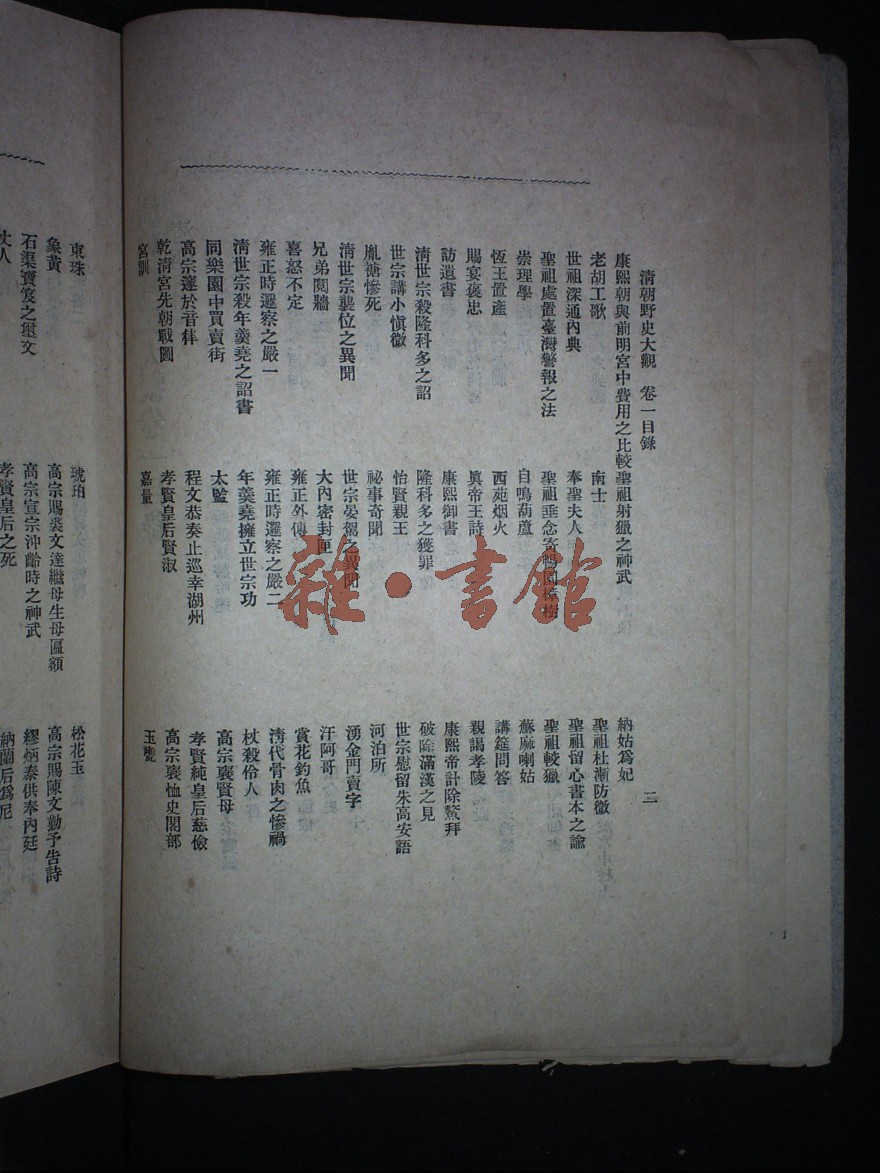 清朝野史大觀　卷一目錄　三
康熙朝與前明宮中費用之比較　聖祖射獵之神武　納姑爲妃
老胡工歌　南士　聖祖杜漸防微
世祖深通內典　奉聖夫人　聖祖留心書本之諭
聖祖處置臺灣警報之法　聖祖垂念寄暢園樟樹　聖祖較獵
崇理學　自鳴葫蘆　蘇麻喇姑
恆王置產　西苑烟火　講筵問答
賜宴褒忠　眞帝王詩　親謁孝陵
訪遺書　康熙御書　康熙帝計除鰲拜
清世宗殺隆科多之詔　隆科多之獲罪　破除滿漢之見
世宗講小愼微　怡賢親王　世宗慰留朱高安語
胤禟慘死　祕事奇聞　河泊所
清世宗襲位之異聞　世宗晏駕之異聞　湧金門賣字
兄弟鬩牆　大內密封匣　汗阿哥
喜怒不定　雍正外傳　賞花釣魚
雍正時邏察之嚴一　雍正時邏察之嚴二　清代骨肉之慘禍
清世宗殺年羹堯之詔書　年羹堯擁立世宗功　杖殺伶人
同樂園中買賣街　太監　高宗褒賢母
高宗邃於音律　程文恭奏止巡幸湖州　孝賢純皇后慈儉
乾清宮先朝戰圖　孝賢皇后賢淑　高宗褒恤史閣部
宮訓　嘉量　玉甕
東珠　琥珀　松花玉
象黃　高宗賜裘文達繼母生母匾額　高宗賜陳文勤予告詩
石渠寶笈之璽文　高宗宣宗沖齡時之神武　繆炳泰供奉內廷
人　孝賢皇后之死　納蘭后爲尼
雜·書館